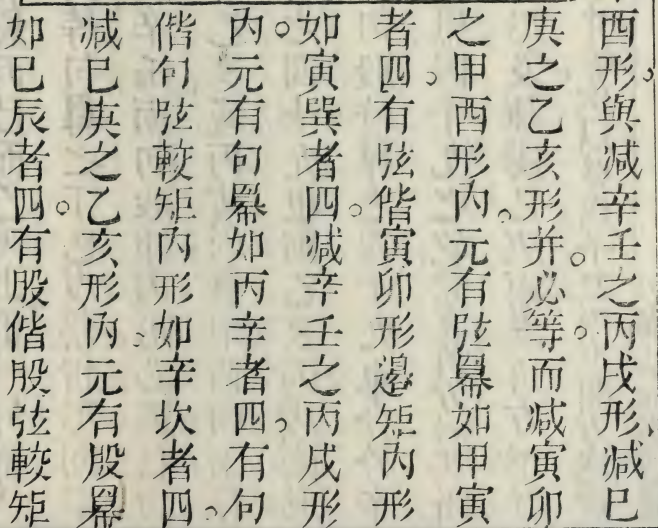 酉形與减辛壬之丙戌形减巳
庚之乙亥形并必等而减寅卯
之甲酉形内元有弦羃如甲寅
者四有弦偕寅卯形邉矩内形
如寅巽者四减辛壬之丙戌形
内元有句羃如丙辛者四有句
偕句弦較矩内形如辛坎者四
减巳庚之乙亥形内元有股羃
如巳辰者四有股偕股弦較矩